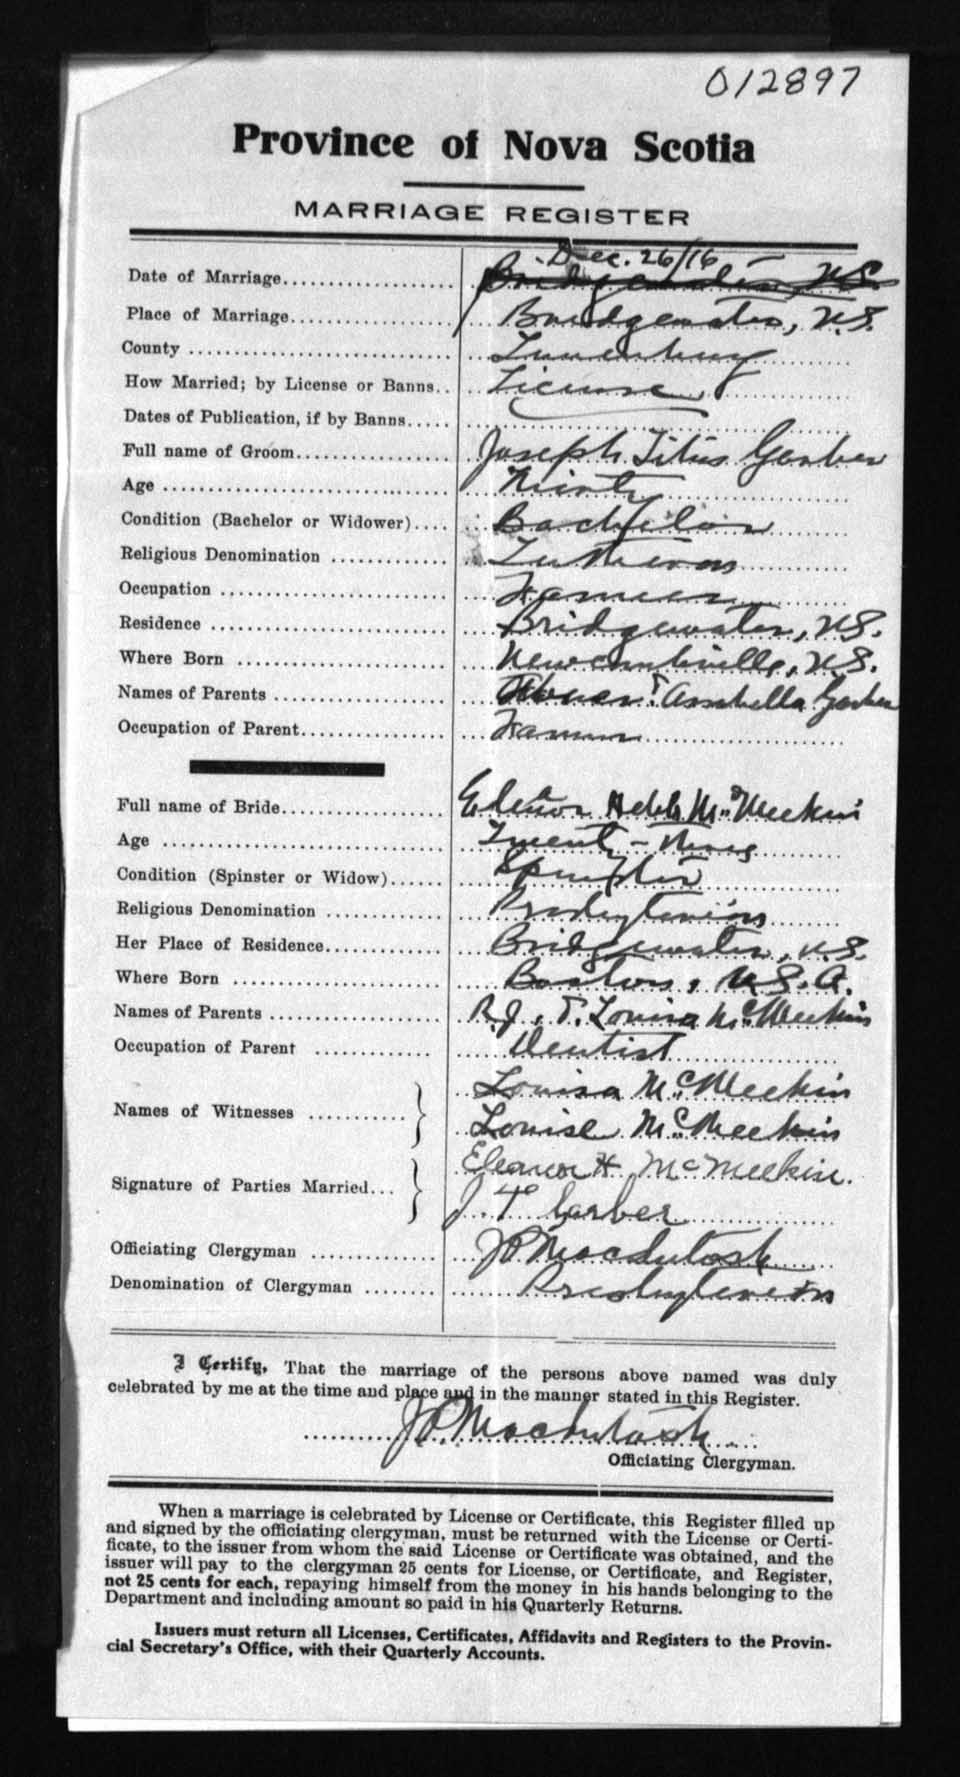 012897
Province of Nova Scotia
MARRIAGE REGISTER
Date of Marriage Dec. 26/16 Bridgewater, N.S.
Place of Marriage Bridgewater, N.S.
County Lunenburg
How Married; by License or Banns License
Dates of Publication, if by Banns
Full name of Groom Joseph Titus Garber
Age Thirty
Condition (Bachelor or Widower) Bachelor
Religious Denomination Lutheran
Occupation Farmer
Residence Bridgewater, N.S.
Where Born Newcombville, N.S.
Names of Parents Abner & Annabella Garber
Occupation of Parent Farmer
Full name of Bride Eleanor Hebb McMeekin
Age Twenty-Nine
Condition (Spinster or Widow) Spinster
Religious Denomination Presbyterian
Her Place of Residence Bridgewater, N.S.
Where Born Boston, U.S.A.
Names of Parents R.J. & Louisa McMeekin
Occupation of Parent Dentist
Names of Witnesses Louisa McMeekin
Louise McMeekin
Signature of Parties Married Eleanor H. McMeekin.
J. T. Garber
Officiating Clergyman J P MacIntosh
Denomination of Clergyman Presbyterian
I Certify, That the marriage of the persons above named was duly
celebrated by me at the time and place and in the manner stated in this Register.
J P. MacIntosh
Officiating Clergyman.
When a marriage is celebrated by License or Certificate, this Register filled up
and signed by the officiating clergyman, must be returned with the License or Certi-
ficate, to the issuer from whom the said License or Certificate was obtained, and the
issuer will pay to the clergyman 25 cents for License, or Certificate, and Register,
not 25 cents for each, repaying himself from the money in his hands belonging to the
Department and including amount so paid in his Quarterly Returns.
Issuers must return all Licenses, Certificates, Affidavits and Registers to the Provin-
cial Secretary's Office, with their Quarterly Accounts.